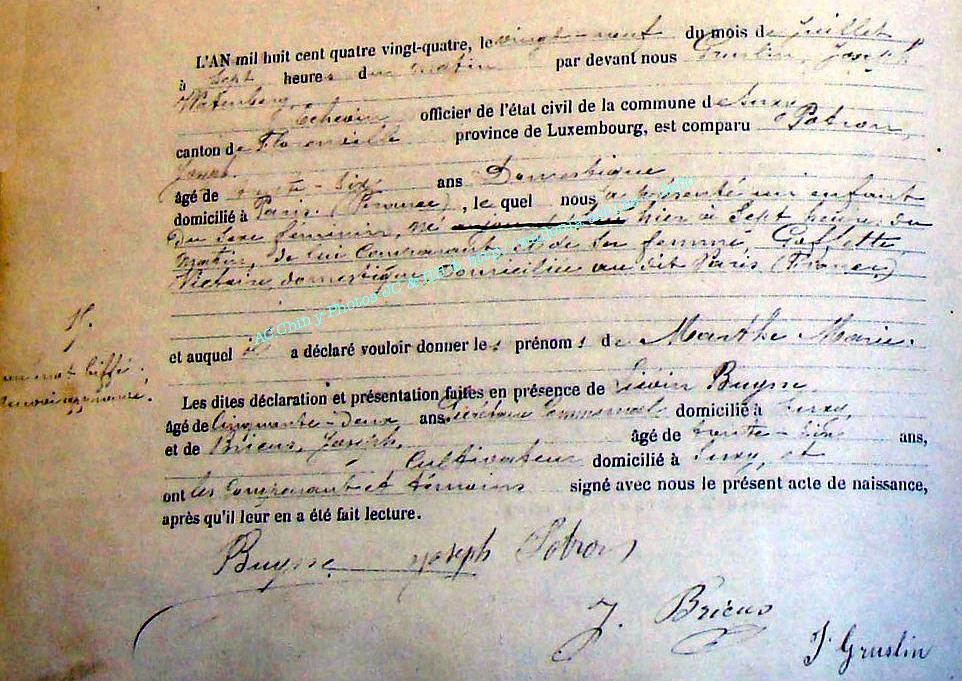 L'AN mil huit cent quatre vingt-quatre, le vingt-neuf du mois de juillet
à Sept heures du matin par devant nous Gruslin, Joseph
Échevin officier de l'état civil de la commune de
canton de Florenville province de Luxembourg, est comparu
Joseph
âgé de trente-six ans Domestique
domicilié à Paris (France), le quel nous a présenté un enfant
du sexe féminin, né hier à Sept heures du
matin, de lui Comparant et de sa femme, Goffette
Victoire, domestique, domiciliée au dit Paris (France)
et auquel il a déclaré vouloir donner les prénoms de Marthe Marie.
un mot biffé.
Les dites déclaration et présentation faites en présence de Buysse
âgé de Cinquante-Deux ans Secrétaire Communal domicilié à
et de Brieus, Joseph, âgé de trente-six ans,
Cultivateur domicilié à et
ont les Comparant et témoins signé avec nous le présent acte de naissance,
après qu'il leur en a été fait lecture.
Buysse Joseph
J. Brieus
J Gruslin